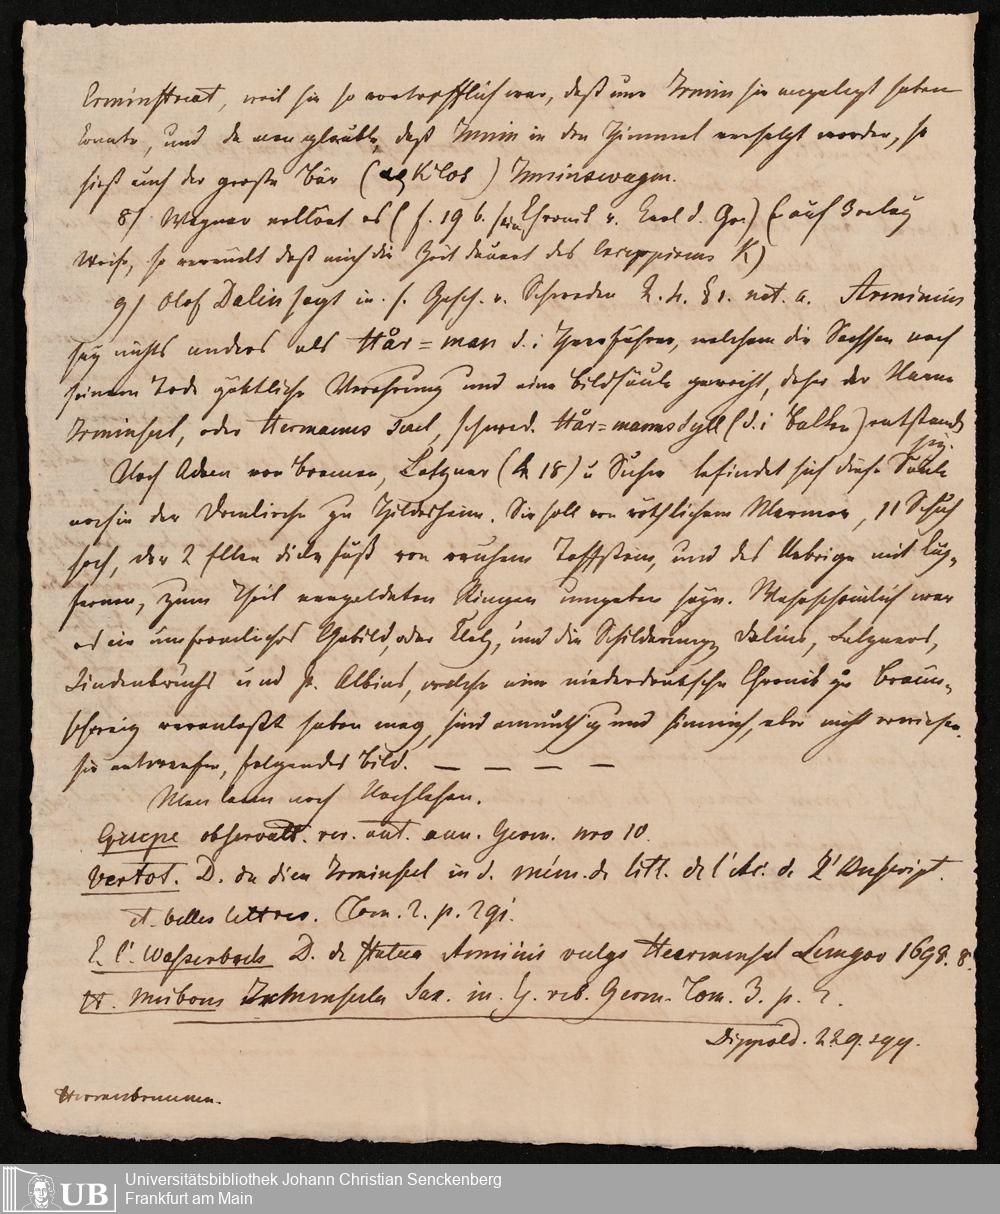 Erminstreat, weil sie so vortrefflich war, daß nur Irmin sie angelegt haben
konnte, und da man glaubte, daß Irmin in den Himmel versetzt worden, so
hieß auch der große Bär ( ) Irminswagen.
8) Wegner (s. 196. Chronik v. Karl d. Gr.) auf
Weise, so daß auch die Zeit des K)
9) Olof Dalin sagt in s. Gesch. v. Schweden not. a. Arminius
sey nichts anders als Hår=man d. i Heerführer, welchem die Sachsen nach
seinem Tode göttliche Verehrung und eine Bildsäule geweiht, daher der Name
Irminsul, oder Hermanns Seul, schwed. Hår=mansdyll (d. i Balken) entstanden
sey.
Nach Adam von Bremen, Letzner (K 18) u befindet sich diese Säule
noch in der Domkirche zu Hildesheim. Sie soll von röthlichem Marmor, 11 Schuh
hoch, der 2 Ellen dicke Fuß von rauhem Toffstein, und das Uebrige mit kup-
fernen, zum Theil vergoldeten Ringen umgeben seyn. Wahrscheinlich war
es ein unförmliches Gebild, oder Klotz, und die Schilderungen Dalins, Letzners,
Lindenbruchs und P. Albins, welche eine niedersächsische Chronik zu Braun-
schweig veranlaßt haben mag, sind anmuthig und sinnreich, aber nicht erwiesen.
sie entwerfen, folgendes Bild. — — — —
Man kann noch Nachlesen.
Grupe observatt. rer. ant. Germ. nro 10.
Vertot. D. Irminsul in d. mém. de litt. de l'Ac. de l'Inscript.
et belles lettres. Tom. 2. p. 291.
E. C. Wasserbach D. de statua Arminii vulgo Heermensul Lemgov 1698. 8.
H. Meibom Irminsula Sax. in reb. Germ. Tom. 3. p. 2.
Dippold. 229. sqq.
Herrenbrunnen.
Universitätsbibliothek Johann Christian Senckenberg
Frankfurt am Main
UB